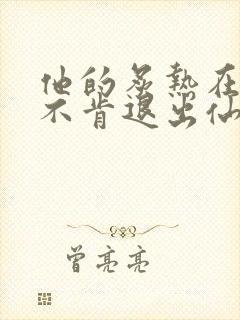 他的炙热在
不肯退出仙
曾亮亮